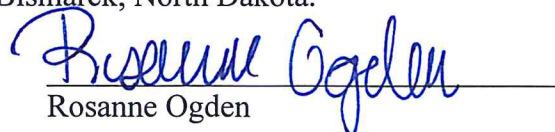 Bismarck, North Dakota.
Rosanne Ogden
Rosanne Ogden